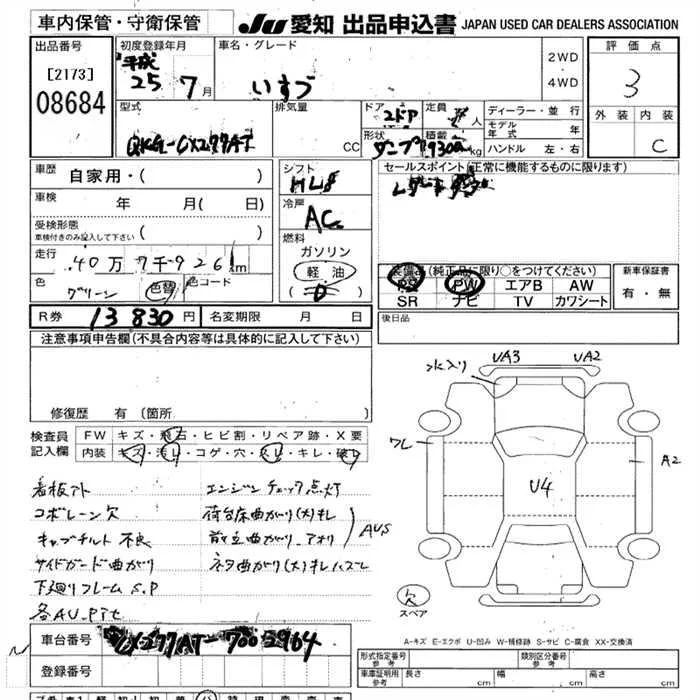 車内保管・守衛保管
JU 愛知 出品申込書 JAPAN USED CAR DEALERS ASSOCIATION
出品番号
[2173]
08684
初度登録年月
平成
25 7月
車名・グレード
いすゞ
2WD
・
4WD
評価点
3
外装 内装
C
型式
QKG-CX277AT
排気量
CC
ドア 2ドア
定員 人
形状 ダンプ
積載 9300 kg
ディーラー・並行
モデル年式 年
ハンドル 左・右
車歴 自家用・( )
車検 年 月( 日)
受検形態
車検付きのみ記入して下さい ( )
走行 40万7千926km
色 グリーン
色替
色コード
シフト
冷房
AC
燃料
ガソリン
軽油
( )
セールスポイント(正常に機能するものに限ります)
装備品(純正品に限り○をつけてください)
PS PW エアB AW
SR ナビ TV カワシート
新車保証書
有・無
R券 13830円
名変期限 月 日
後日品
注意事項申告欄(不具合内容等は具体的に記入して下さい)
修復歴 有(箇所
検査員記入欄
FW キズ・飛石・ヒビ割・リペア跡・X要
内装 キズ・汚れ・コゲ・穴・スレ・キレ・破れ
看板アト
コボレーン欠
キャブチルト不良
サイドガード曲がり
下廻りフレームS.P
各AU.P
エンジンチェック点灯
荷台床曲がり(大)キレ
前立曲がり アオリ
AUS
水入り UA3 UA2
ワレ
A2
U4
欠
スペア
A-キズ E-エクボ U-凹み W-補修跡 S-サビ C-腐食 XX-交換済
車台番号 CX277AT-7002964
登録番号
形式指定番号 参考
類別区分番号 参考
車庫証明用 参考
長さ cm
幅 cm
高さ cm